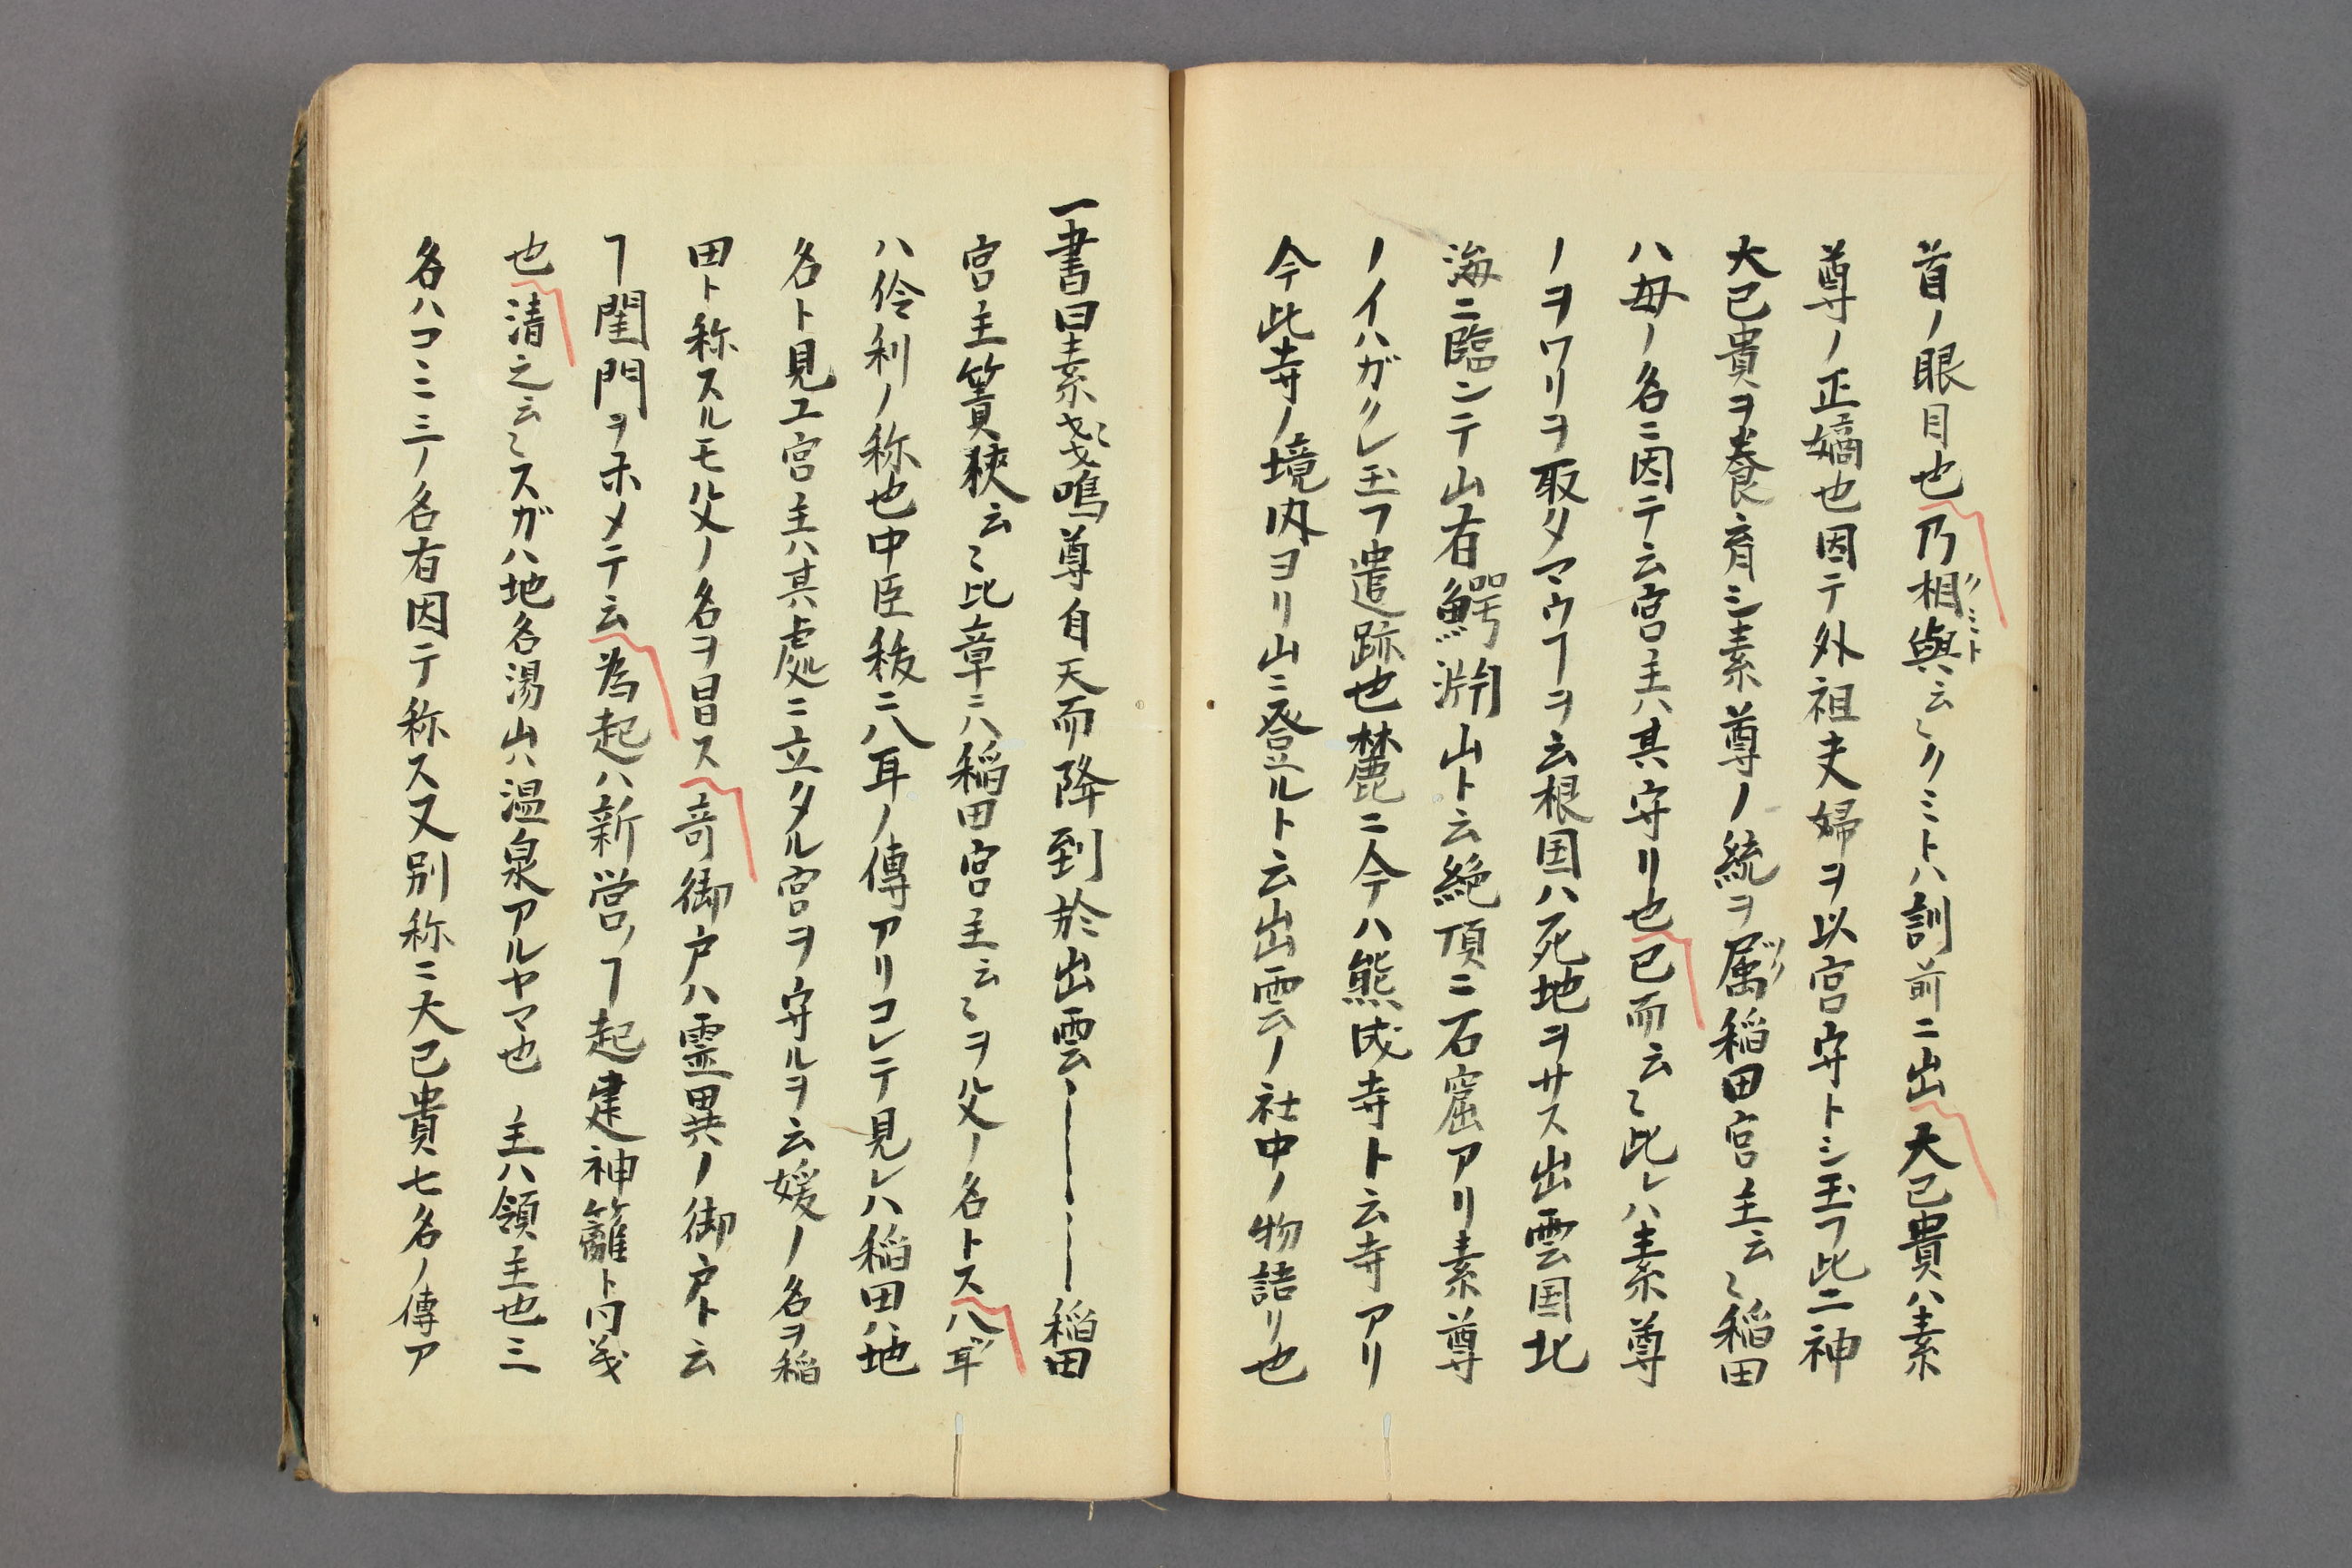 首ノ眼目也乃相與云〻クミトハ訓前ニ出大己貴ハ素
尊ノ正嫡也因テ外祖夫婦ヲ以宮守トシ玉フ此二神
大己貴ヲ養育シ素尊ノ統ヲ属稲田宮主云〻稲田
ハ毋ノ名ニ因テ云宮主ハ其守リ也已而云〻此レハ素尊
ノヲワリヲ取タマウヿヲ云根国ハ死地ヲサス出雲国北
海ニ臨ンテ山有鰐淵山ト云絶頂ニ石窟アリ素尊
ノイハガクレ玉フ遺跡也麓ニ今ハ熊成寺ト云寺アリ
今此寺ノ境内ヨリ山ニ登ルト云出雲ノ社中ノ物語リ也
一書曰素戔〻鳴尊自天而降到於出雲――――稲田
宮主簀狹云〻此章ニハ稲田宮主云〻ヲ父ノ名トス八耳
ハ伶利ノ称也中臣秡ニ八耳ノ傳アリコレテ見レハ稲田ハ地
名ト見ユ宮主ハ其處ニ立タル宮ヲ守ルヲ云媛ノ名ヲ稲
田ト称スルモ父ノ名ヲ冒ス奇御戸ハ霊異ノ御戸ト云
ヿ閨門ヲホメテ云為起ハ新営ノヿ起建神籬ト同義
也清之云〻スガハ地名湯山ハ温泉アルヤマ也 主ハ領主也三
名ハコニ三ノ名有因テ称ス又別称ニ大己貴七名ノ傳ア